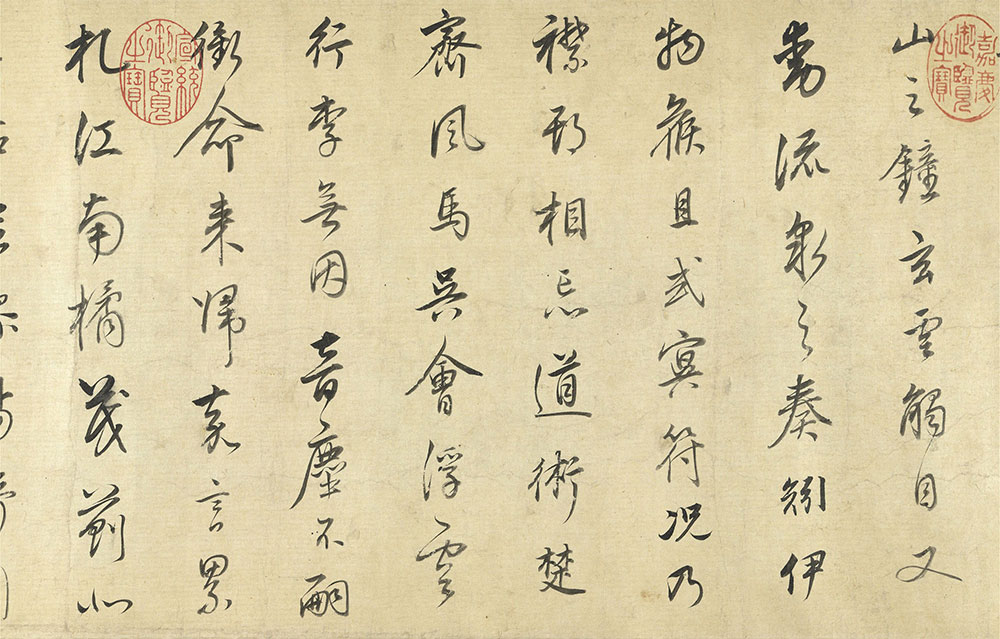 山之鐘玄雲觸目又
動流泉之奏矧伊
物候且或冥符况乃
襟期相忘道術楚
齊風馬吳會浮雲
行李無因音塵不嗣
銜命來歸嘉言累
札江南橘茂薊北
嘉慶御覽之寶
宣統御覽之寶